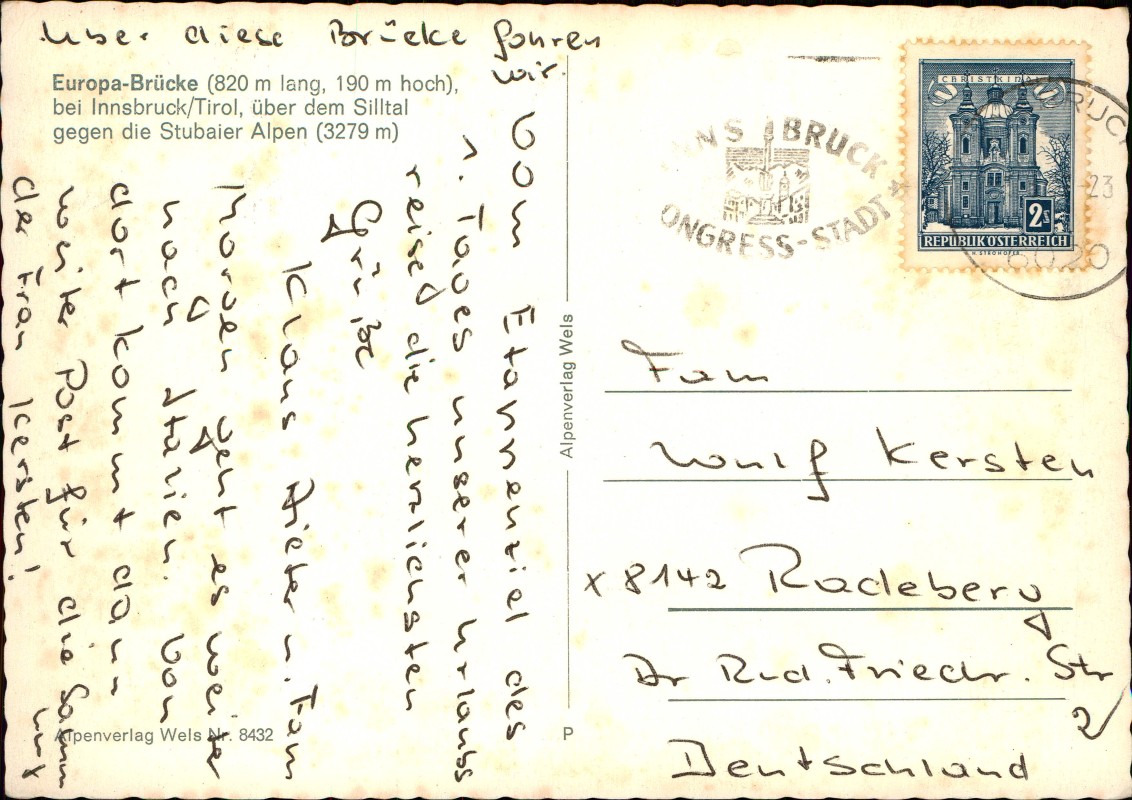 Über diese Brücke fahren
wir.
Europa-Brücke (820 m lang, 190 m hoch),
bei Innsbruck/Tirol, über dem Silltal
gegen die Stubaier Alpen (3279 m)
Vom Etappenziel des
1. Tages unserer Urlaubs
reise die herzlichsten
Grüße
Klaus Dieter u. Fam
Morgen geht es weiter
nach Italien. Von
dort kommt dann
weite Post für die Samm
lung
der Frau Kersten!
Alpenverlag Wels Nr. 8432
Alpenverlag Wels
P
INNSBRUCK
KONGRESS-STADT
CHRISTKINDL
2 S
REPUBLIK ÖSTERREICH
H. STROHOFER
BRUCK
23
6020
Fam
Wulf Kersten
x 8142 Radeberg
Dr Rud. Friedr. Str
2
Deutschland